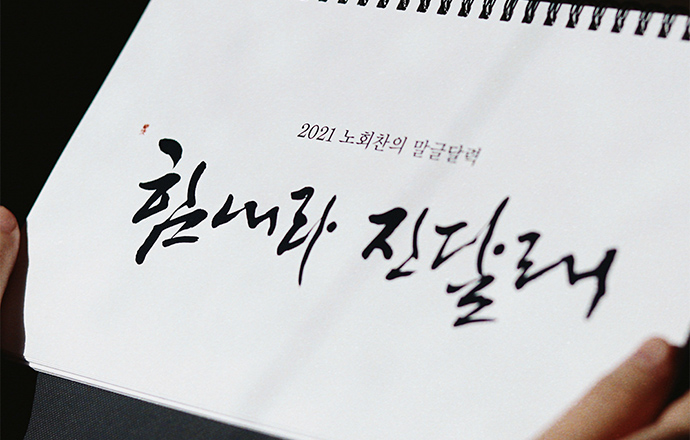 2021 노회찬의 말글달력
힘내라 진달래